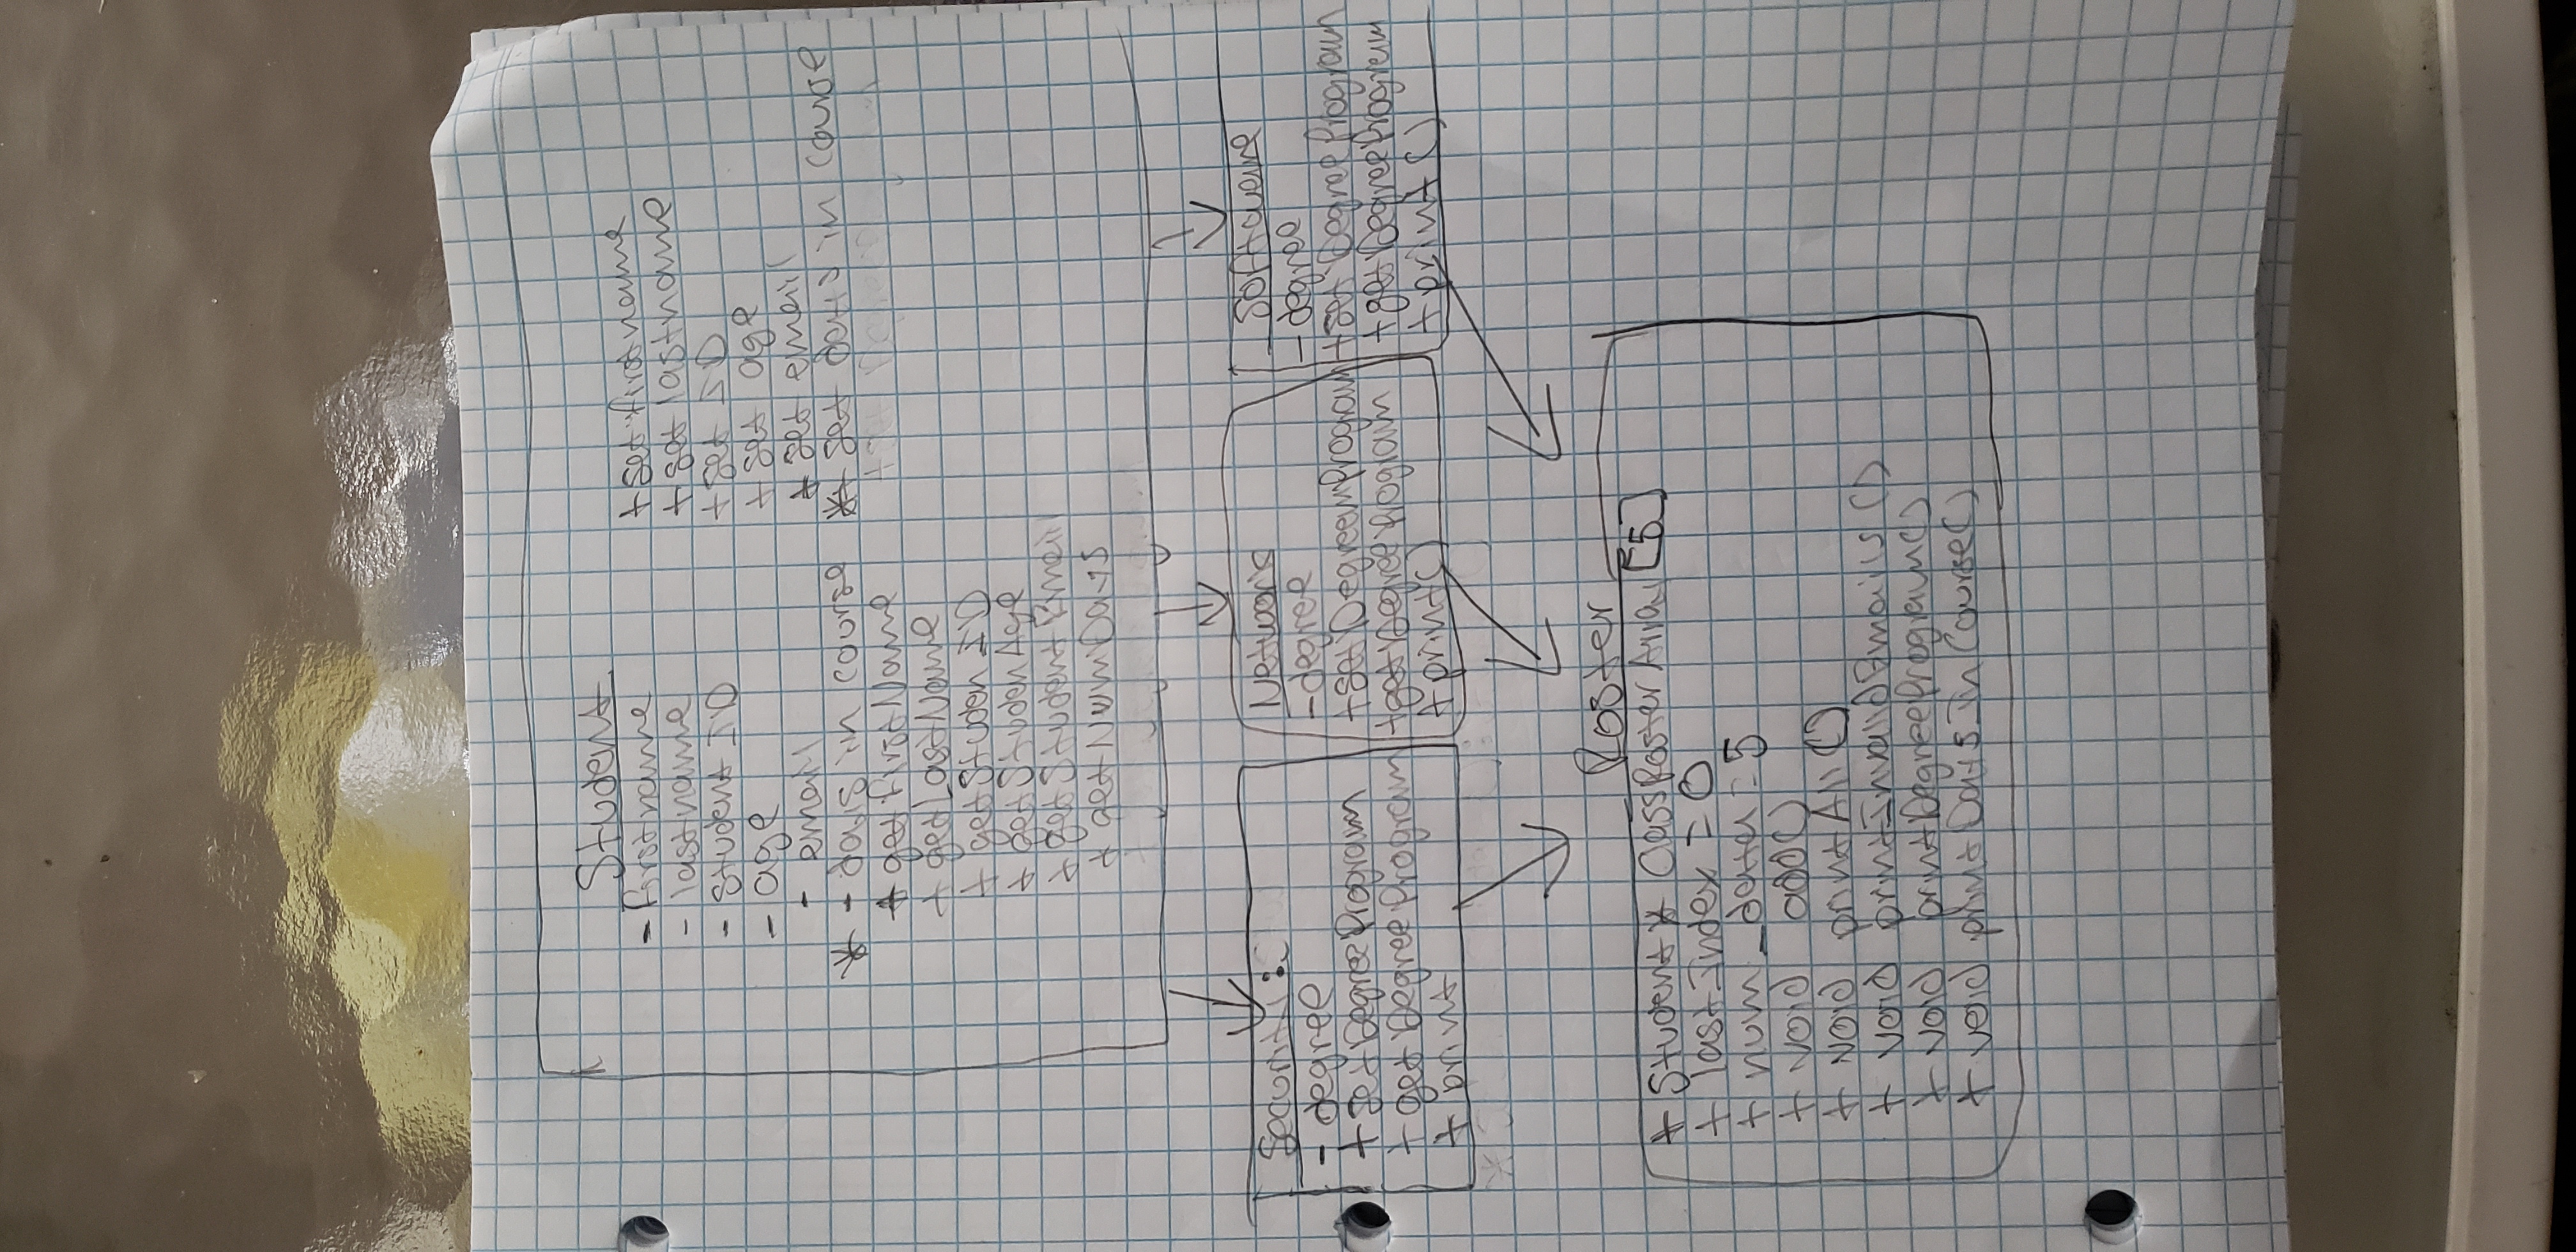 Student
- firstname
- lastname
- student ID
- age
- email
* - days in course
+ getFirstName
+ getLastName
+ getStuden ID
+ getStudenAge
+ getStudentEmail
+ getNumDays
+ set firstname
+ set lastname
+ set ID
+ set age
+ set email
*+ set days in course
Security
- degree
+ setDegreeProgram
+ getDegreeProgram
+ print
Network
- degree
+ setDegreemProgram
+ getDegreeProgram
+ print()
Software
- degree
+ set DegreeProgram
+ getDegreeProgram
+ print()
Roster
+ Student* ClassRosterArray [5]
+ lastIndex = 0
+ num_data = 5
+ void add()
+ void printAll()
+ void printInvalidEmails()
+ void printDegreeProgram()
+ void printDaysInCourse()